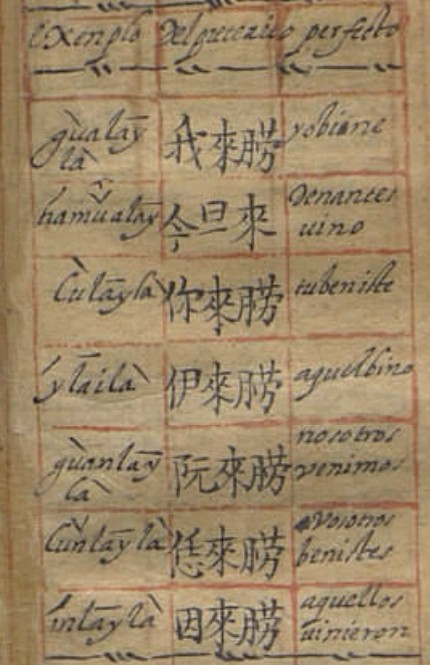 Exenplo Del preterito perfecto
guàlaȳ là 我來朥 yo bine
hamùalaȳ 今旦來 Denantes uino
lùlāylà 你來朥 tubeniste
ylāilà 伊來朥 aquelbino
guànlaȳ là 阮來朥 nosotros venimos
lùnlāylà 恁來朥 Vosotros benistes
ìnlāylà 因來朥 aquellos uinieron